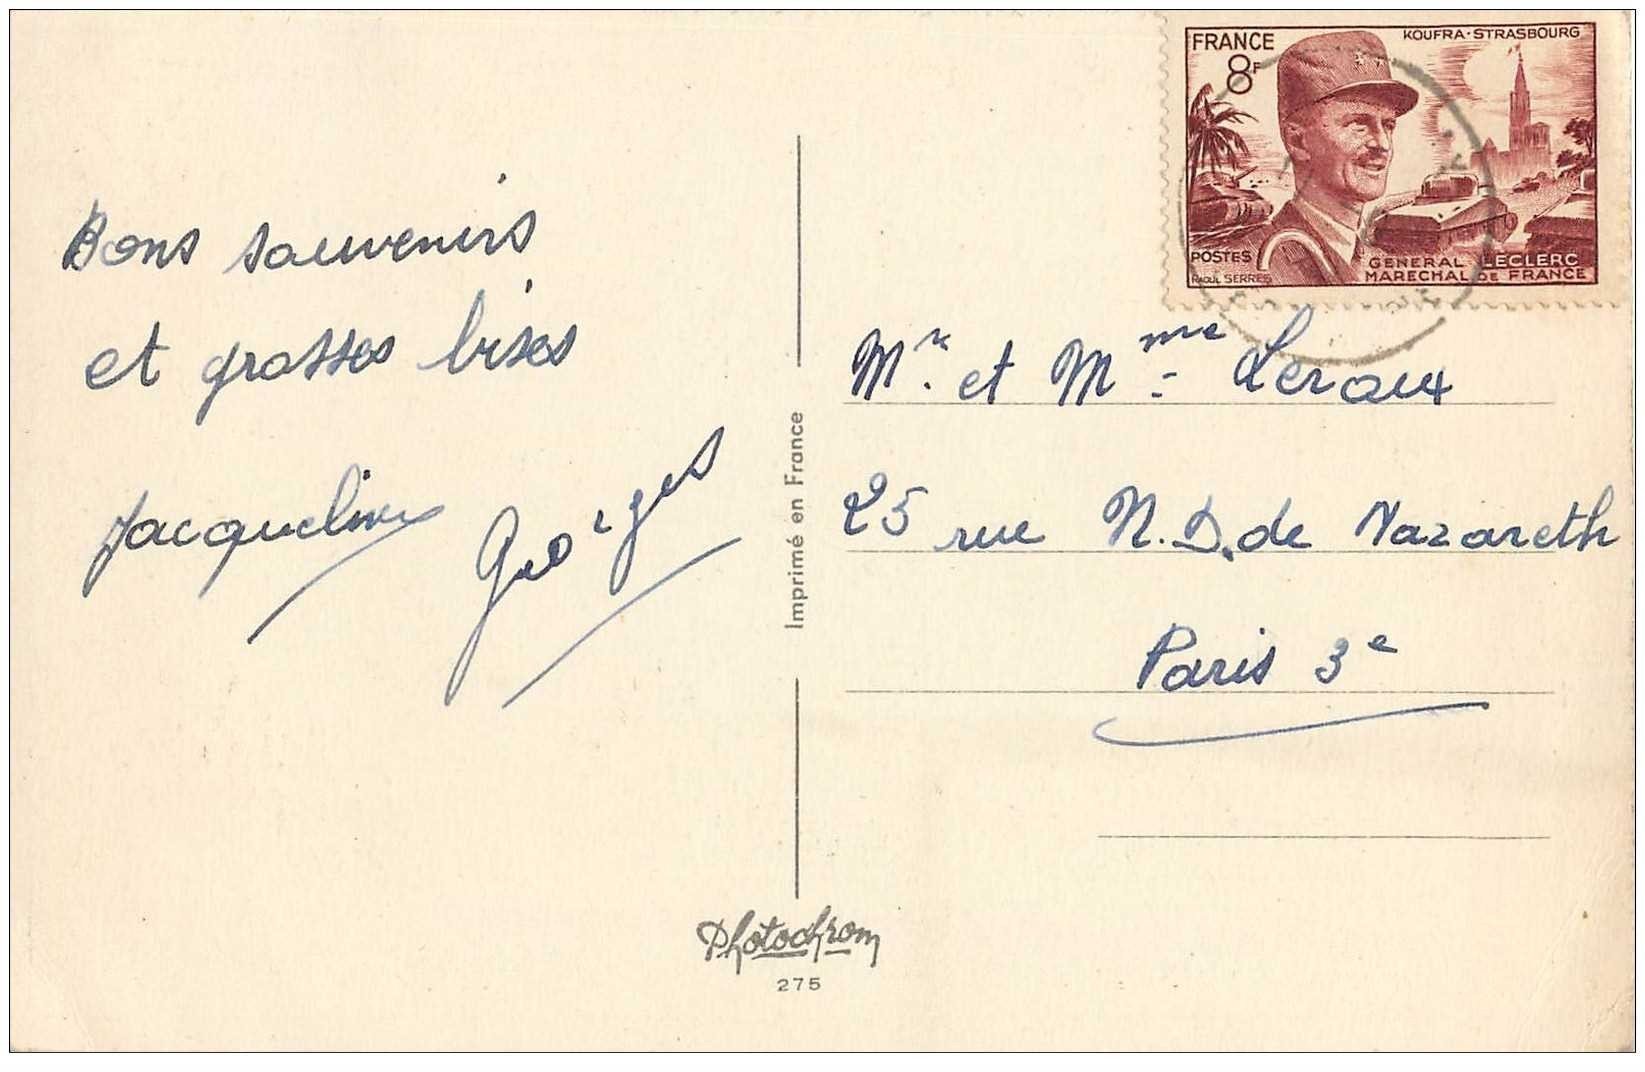 FRANCE
8F
KOUFRA-STRASBOURG
POSTES
RAOUL SERRES
GENERAL LECLERC
MARECHAL DE FRANCE
Bons souvenirs
et grosses bises
Jacqueline Georges
Imprimé en France
Mr. et Mme Leroux
25 rue N.D. de Nazareth
Paris 3e
Photochrom
275